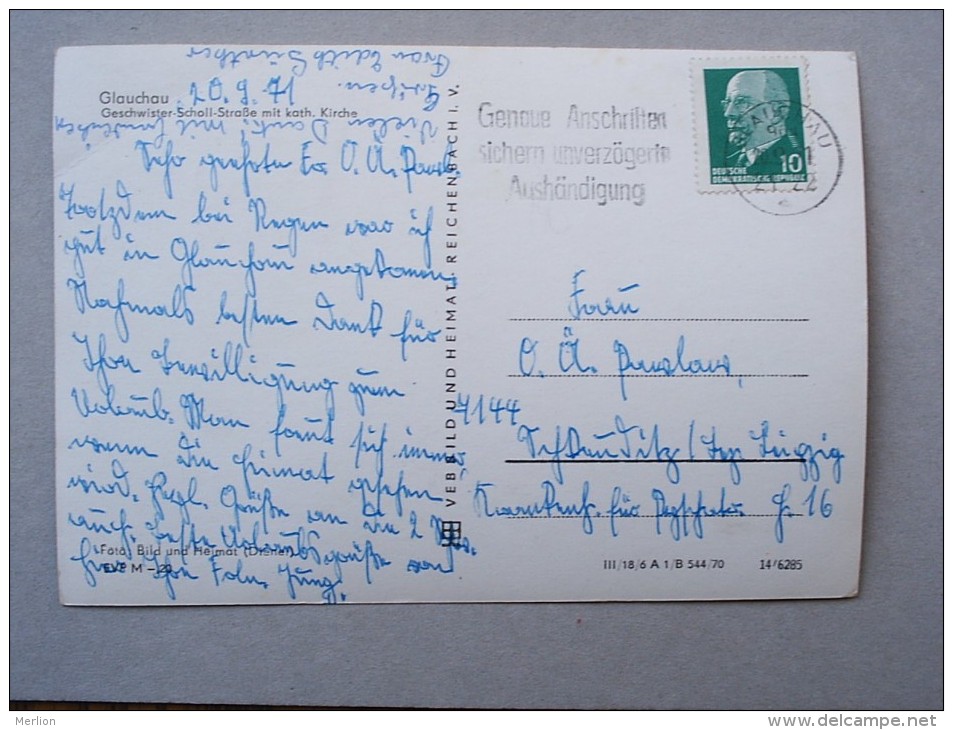 Frau Edith Günther
Grüßen.
Vielen Dank! Mit freundlichen
Glauchau 20.9.71
Geschwister-Scholl-Straße mit kath. Kirche
Sehr geehrte Fr. O. Ä.
Trotzdem bei Regen war ich
gut in Glauchau angekommen.
Nochmals besten Dank für
Ihre Bewilligung zum
Urlaub. Man freut sich immer
wenn die Heimat gesehen
wird. Herzl. Grüße an die 2
auch. Beste Urlaubsgrüße von
hier Ihre Jung.
Foto: Bild und Heimat
EVP M –.20
VEB BILD UND HEIMAT REICHENBACH I. V.
Genaue Anschriften
sichern unverzögerte
Aushändigung
GLAUCHAU
22
10
DEUTSCHE
DEMOKRATISCHE REPUBLIK
Frau
O. Ä.
7144
Schkeuditz / Leipzig
Krankenh. für H. 16
III/18/6 A 1/B 544/70 14/6285
Merlion
www.delcampe.net